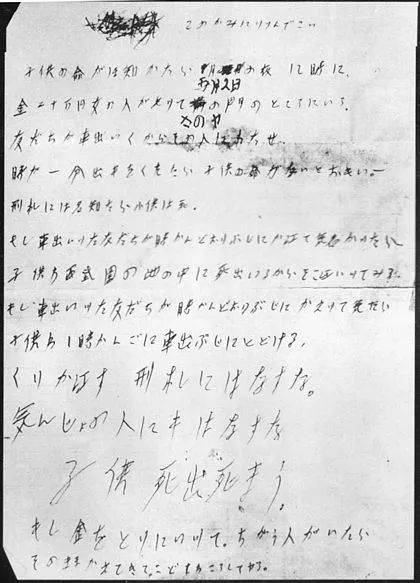 このかみにツツんでこい
子供の命がほ知かたら
五月2日
の夜12時に、
金二十万円女の人がもッて
の門のところにいろ。
さのヤ
友だちが車出いくからその人にわたせ。
時が一分出もをくれたら子供の命がないとおもい。ー
刑札には名知たら小供は死。
もし車出いッた友だちが時かんどおりぶじにかえッて気なかッたら
子供わ西武園の池の中に死出いるからそこエいッてみろ。
もし車出いッた友だちが時かんどおりぶじにかえッて気たら
子供わ1時かんごに車出ぶじにとどける、
くりかえす 刑札にはなすな。
気んじょの人にもはなすな
子供死出死まう。
もし金をとりにいッて、ちがう人がいたら
そのままかえてきて、こどもわころしてヤる。